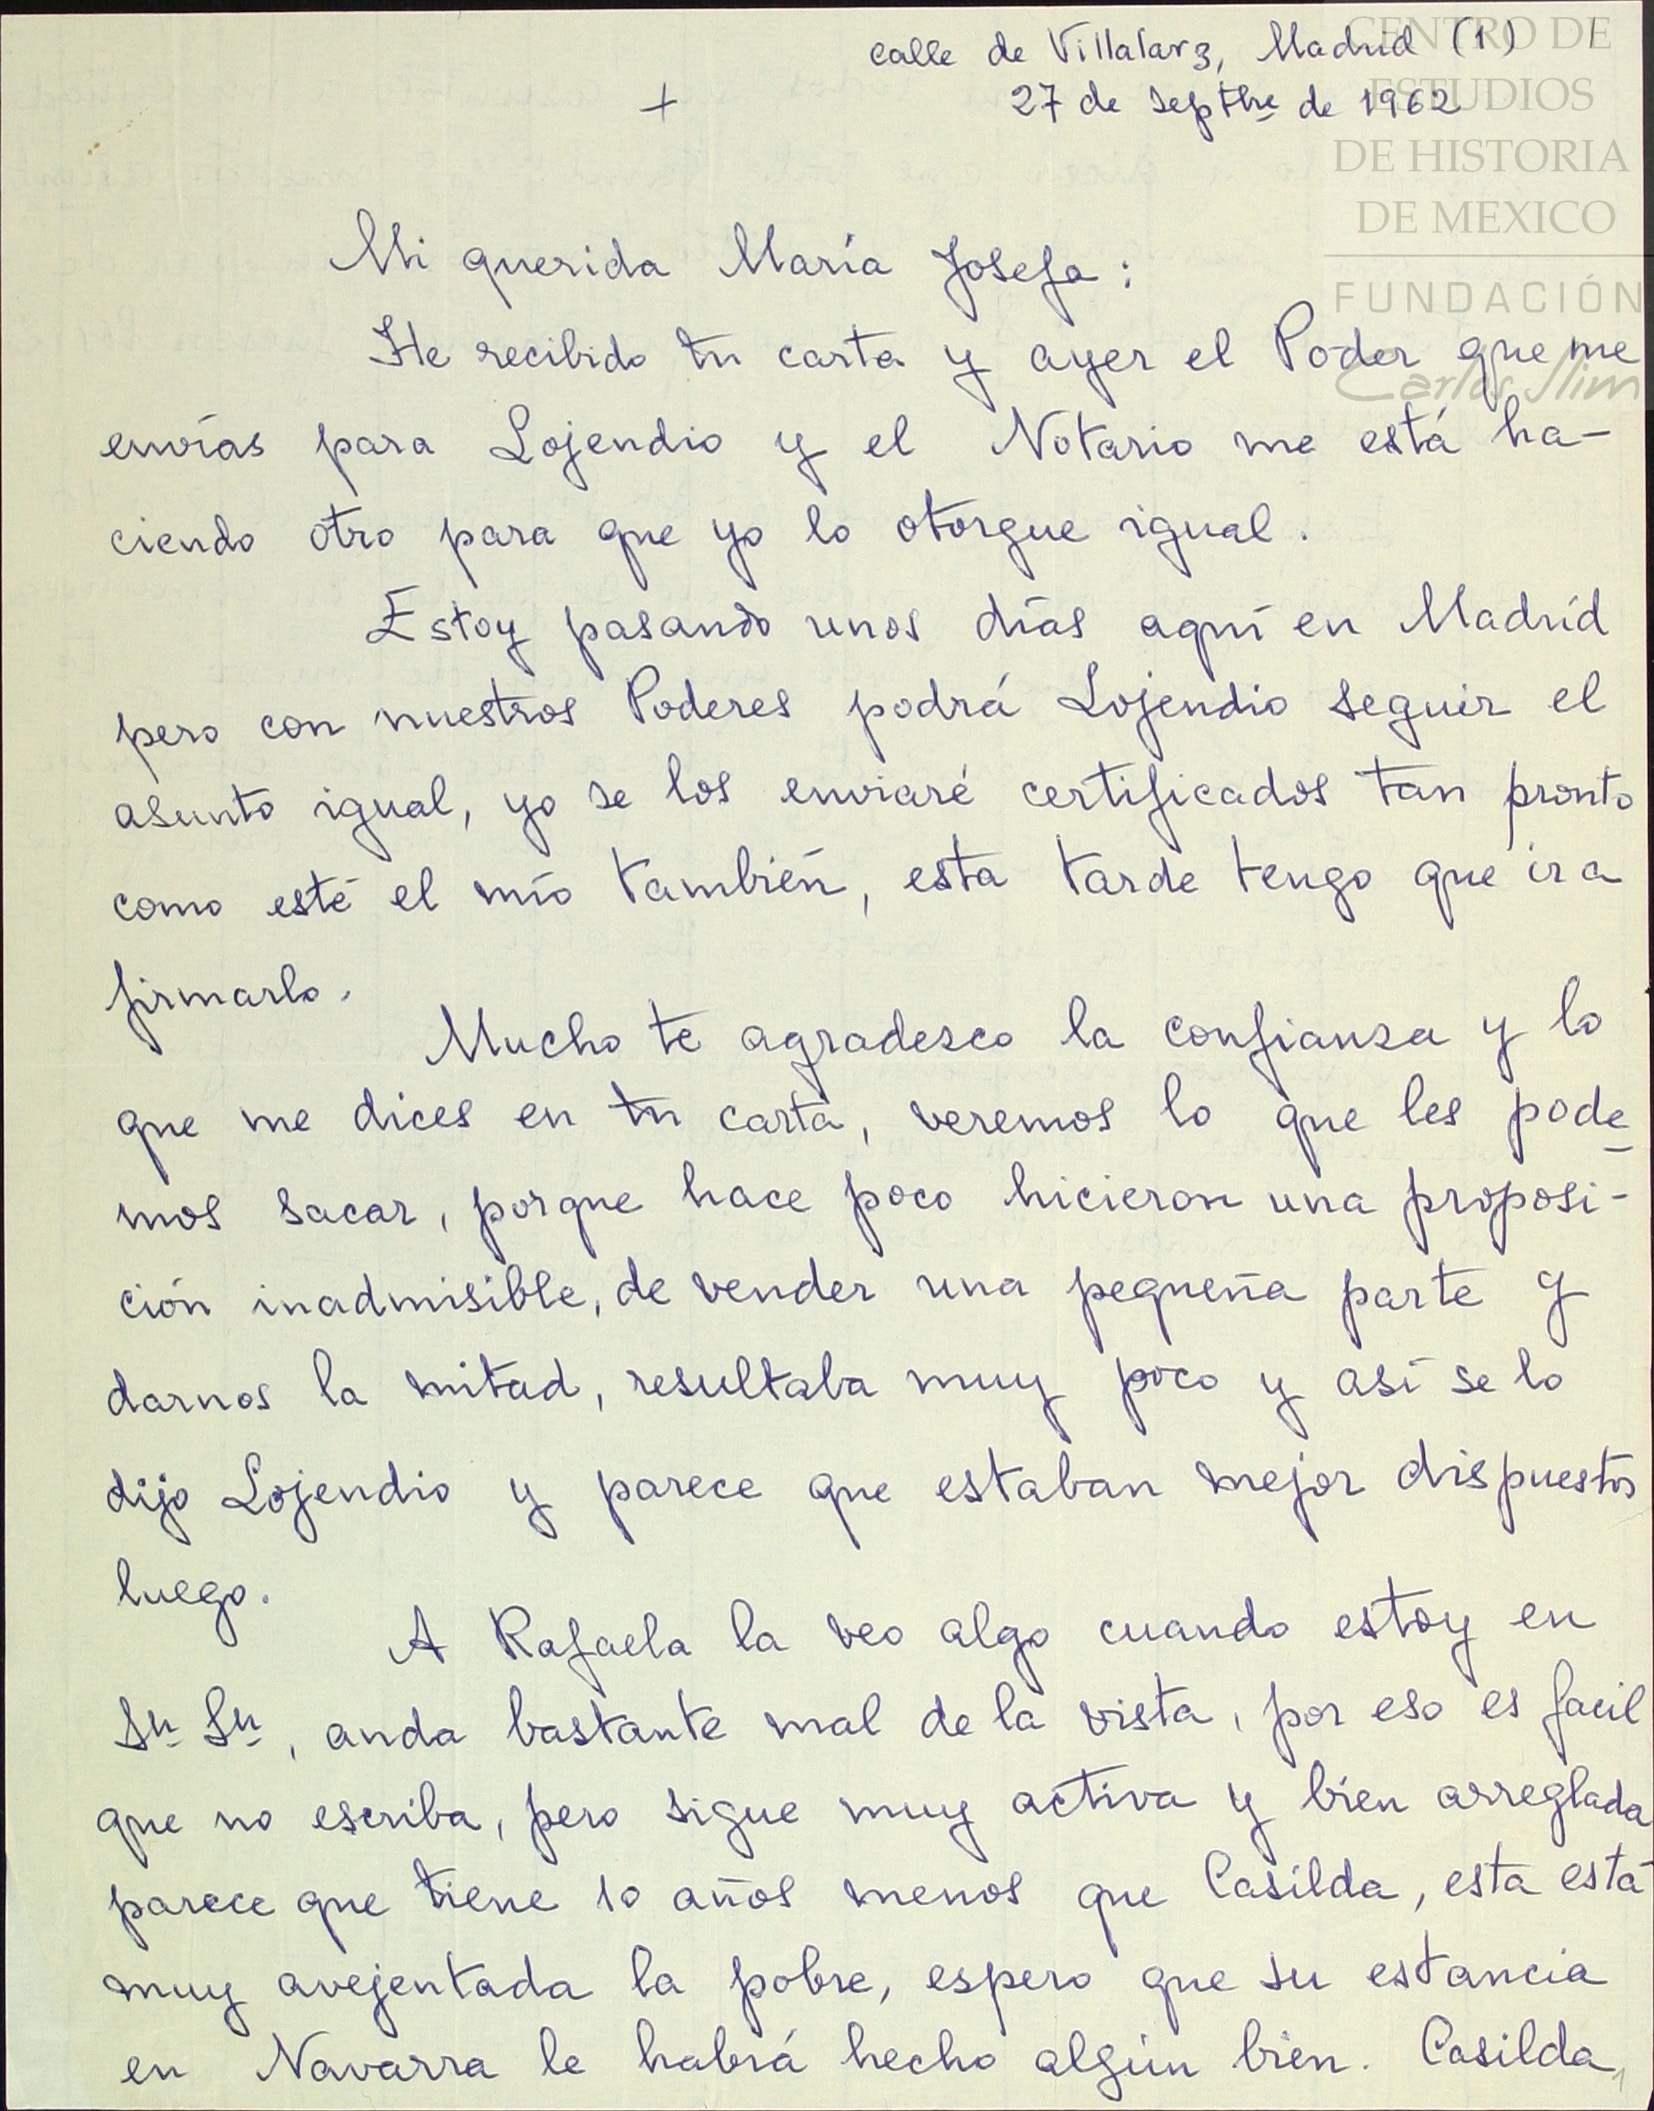 calle de Villalar 3, Madrid (1)
27 de Septbre de 1962
+
CENTRO DE
ESTUDIOS
DE HISTORIA
DE MEXICO
FUNDACIÓN
Carlos Slim
Mi querida María Josefa:
He recibido tu carta y ayer el Poder que me
envías para Lojendio y el Notario me está ha-
ciendo otro para que yo lo otorgue igual.
Estoy pasando unos días aquí en Madrid
pero con nuestros Poderes podrá Lojendio seguir el
asunto igual, yo se los enviaré certificados tan pronto
como esté el mío también, esta tarde tengo que ir a
firmarlo.
Mucho te agradesco la confiansa y lo
que me dices en tu carta, veremos lo que les pode-
mos sacar, porque hace poco hicieron una proposi-
ción inadmisible, de vender una pequeña parte y
darnos la mitad, resultaba muy poco y así se lo
dijo Lojendio y parece que estaban mejor dispuestos
luego.
A Rafaela la veo algo cuando estoy en
Sn Sn, anda bastante mal de la vista, por eso es facil
que no escriba, pero sigue muy activa y bien arreglada
parece que tiene 10 años menos que Casilda, esta está
muy avejentada la pobre, espero que su estancia
en Navarra le habrá hecho algún bien. Casilda,